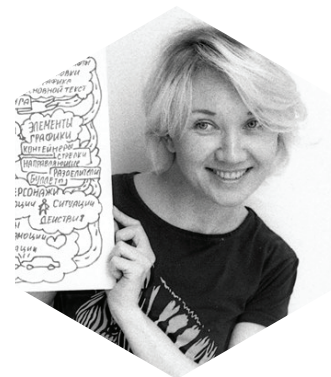 НОВНОЙ ТЕКСТ
ЭЛЕМЕНТЫ
ГРАФИКИ
КОНТЕЙНЕРЫ
СТРЕЛКИ
НАПРАВЛЯЮЩИЕ
РАЗДЕЛИТЕЛИ
БУЛЛЕТЫ
ЕРСОНАЖИ
СИТУАЦИИ
ДЕЙСТВИЯ